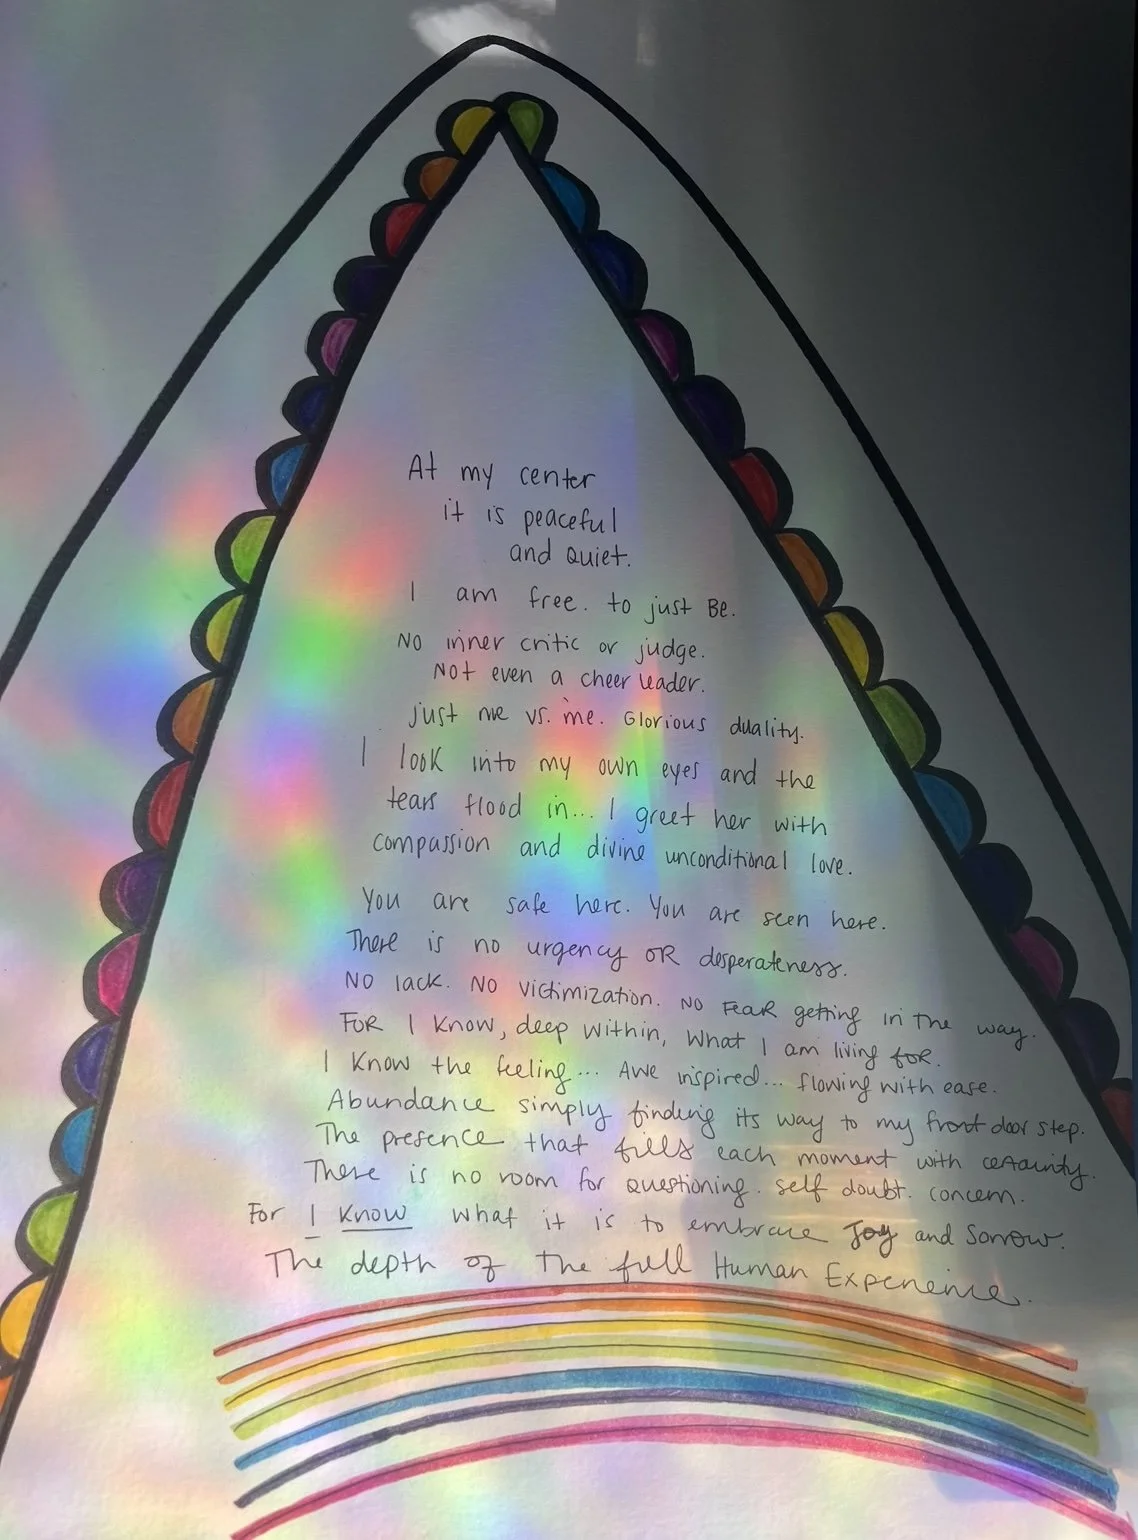 At my center
it is peaceful
and Quiet.
I am free. to just Be.
No inner critic or judge.
Not even a cheer leader.
just me vs. me. Glorious duality.
I look into my own eyes and the
tears flood in... I greet her with
compassion and divine unconditional love.
You are safe here. You are seen here.
There is no urgency OR desperateness.
No lack. No victimization. No FEAR getting in the way.
FOR I Know, deep within, What I am living for.
I Know the feeling... Awe inspired... flowing with ease.
Abundance simply finding its way to my front door step.
The presence that fills each moment with certainty.
There is no room for questioning. self doubt. concern.
For I Know what it is to embrace Joy and Sorrow.
The depth of The full Human Experience.